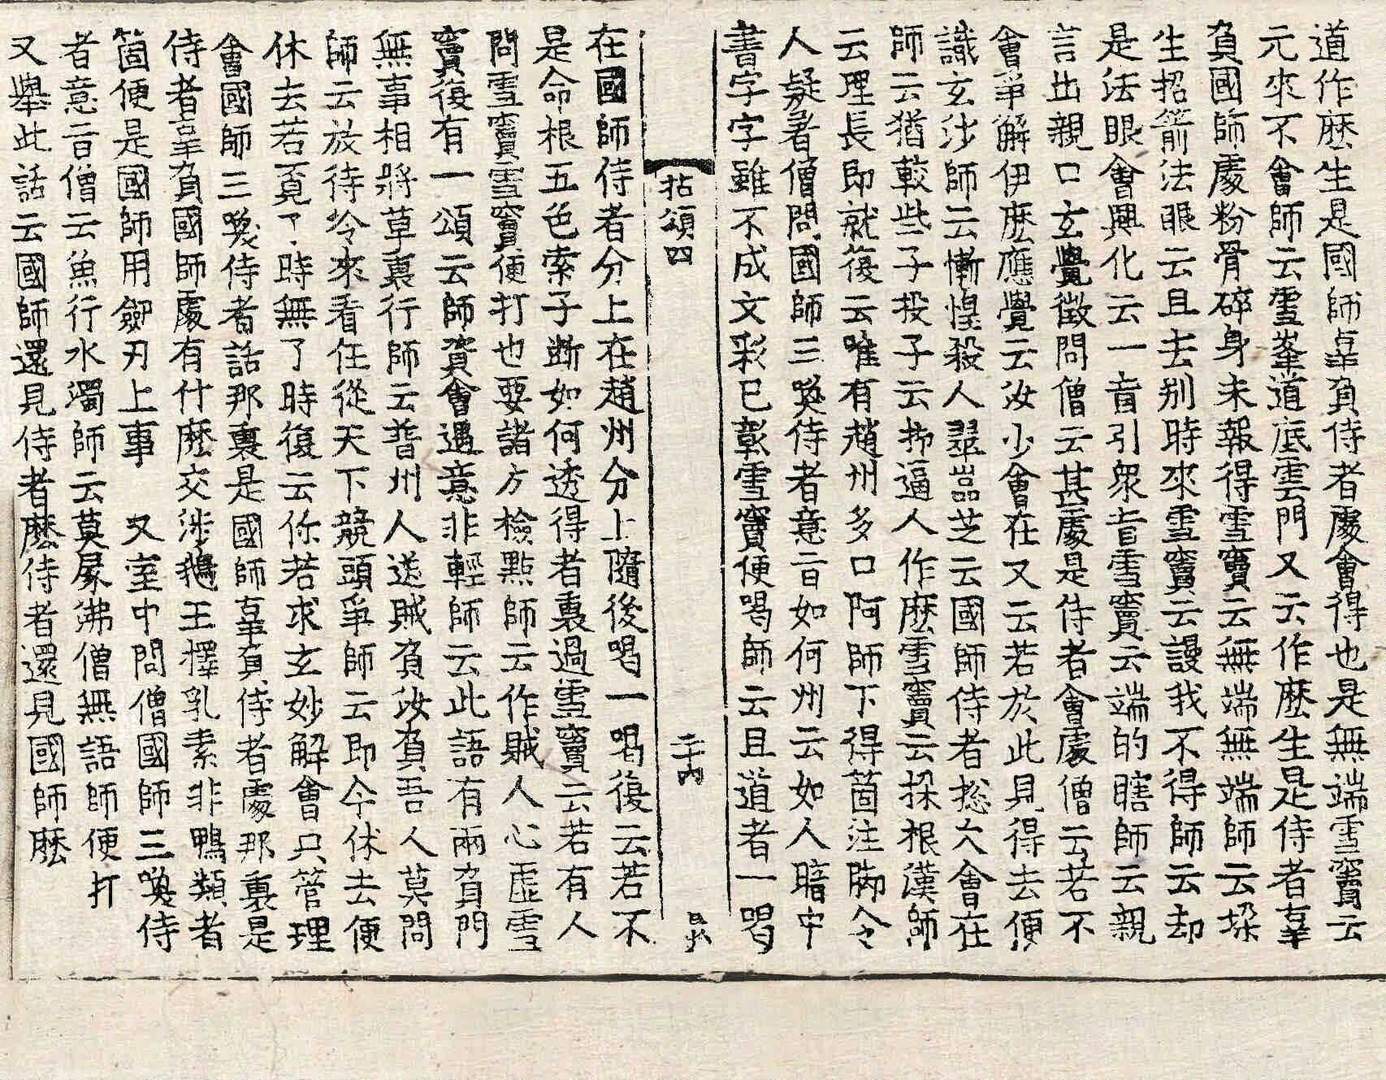 道作麽生是國師辜負侍者處會得也是無端雪竇云
元來不會師云雪峯道底雲門又云作麽生是侍者辜
負國師處粉骨碎身未報得雪竇云無端無端師云垜
生招箭法眼云且去别時來雪竇云謾我不得師云却
是法眼會興化云一盲引衆盲雪竇云端的瞎師云親
言出親口玄覺徵問僧云甚處是侍者會處僧云若不
會爭解伊麽應覺云汝少會在又云若於此見得去便
識玄沙師云慚惶殺人翠嵓芝云國師侍者揔欠會在
師云猶較些子投子云抑逼人作麽雪竇云垜根漢師
云理長即就復云唯有趙州多口阿師下得箇注脚令
人疑著僧問國師三喚侍者意旨如何州云如人暗中
書字字雖不成文彩已彰雪竇便喝師云且道者一喝
拈頌四
二十六
在國師侍者分上在趙州分上隨後喝一喝復云若不
是命根五色索子断如何透得者裏過雪竇云若有人
問雪竇雪竇便打也要諸方檢點師云作賊人心虛雪
竇復有一頌云師資會遇意非輕師云此語有兩負門
無事相將草裏行師云普州人送賊負汝負吾人莫問
師云放待冷來看任從天下競頭爭師云即今休去便
休去若覓了時無了時復云你若求玄妙解會只管理
會國師三喚侍者話那裏是國師辜負侍者處那裏是
侍者辜負國師處有什麽交涉鵝王擇乳素非鴨類者
箇便是國師用劒刃上事 又室中問僧國師三喚侍
者意旨僧云魚行水濁師云莫屎沸僧無語師便打
又舉此話云國師還見侍者麽侍者還見國師麽